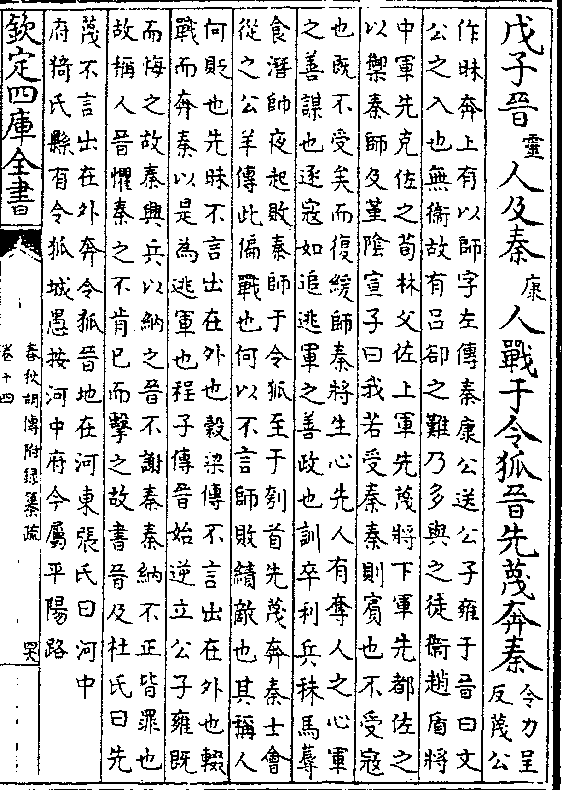 戊子晉靈人及秦康人戰于令狐晉先蔑奔秦令力呈反蔑公
作昧奔上有以師字左傳秦康公送公子雍于晉曰文
公之入也無衛故有呂郤之難乃多與之徒衛趙盾將
中軍先克佐之荀林父佐上軍先蔑將下軍先都佐之
以禦秦師及堇陰宣子曰我若受秦秦則賓也不受寇
也既不受矣而復緩師秦將生心先人有奪人之心軍
之善謀也逐寇如追逃軍之善政也訓卒利兵秣馬蓐
食潛師夜起敗秦師于令狐至于刳首先蔑奔秦士會
從之公羊傳此偏戰也何以不言師敗績敵也其稱人
何貶也先昧不言出在外也穀梁傳不言出在外也輟
戰而奔秦以是為逃軍也程子傳晉始逆立公子雍既
而悔之故秦興兵以納之晉不謝秦秦納不正皆罪也
故稱人晉懼秦之不肯已而擊之故書晉及杜氏曰先
蔑不言出在外奔令狐晉地在河東張氏曰河中
府猗氏縣有令狐城愚按河中府今屬平陽路
欽定四庫全書
春秋胡傳附錄纂疏
卷十四